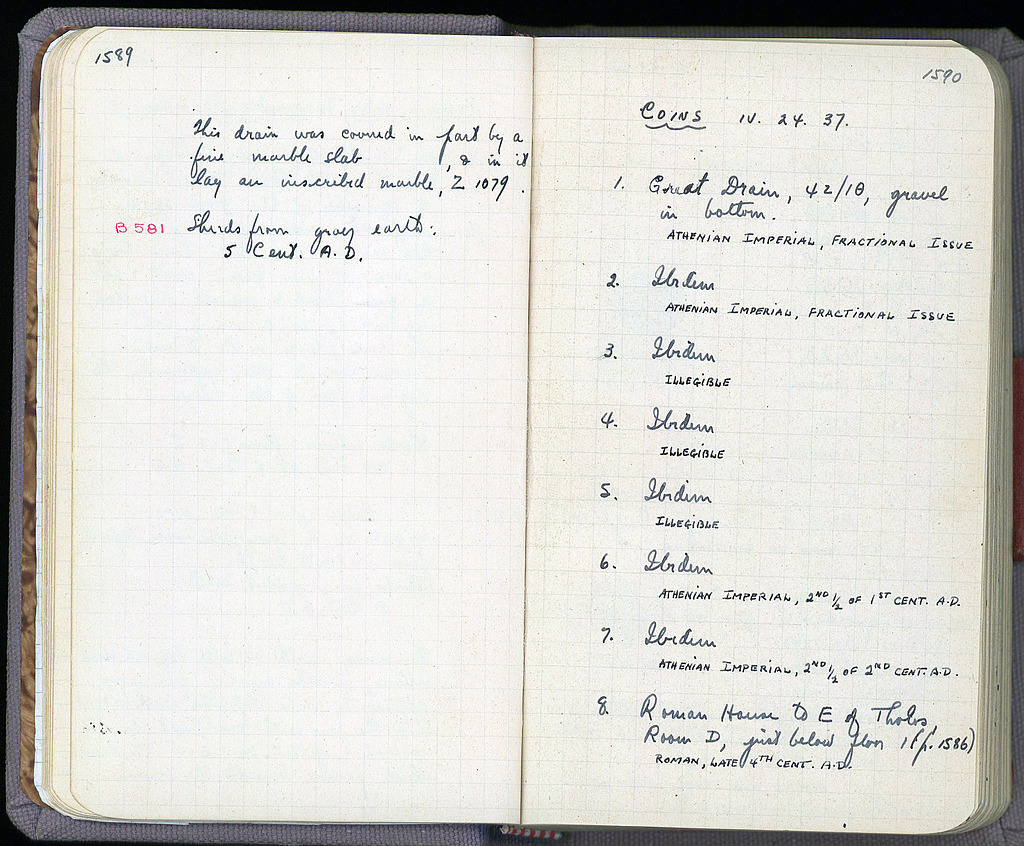 1589
This drain was covered in part by a
fine marble slab , & in it
lay an inscribed marble, Z 1079.
B 581 Sherds from grey earth:
5 Cent. A.D.
1590
COINS IV. 24. 37.
1. Great Drain, 42/ΙΘ, gravel
in bottom.
ATHENIAN IMPERIAL, FRACTIONAL ISSUE
2. Ibidem
ATHENIAN IMPERIAL, FRACTIONAL ISSUE
3. Ibidem
ILLEGIBLE
4. Ibidem
ILLEGIBLE
5. Ibidem
ILLEGIBLE
6. Ibidem
ATHENIAN IMPERIAL, 2ND 1/2 OF 1ST CENT. A.D.
7. Ibidem
ATHENIAN IMPERIAL, 2ND 1/2 OF 2ND CENT. A.D.
8. Roman House to E of Tholos,
Room D, just below floor 1 (p. 1586)
ROMAN, LATE 4TH CENT. A.D.